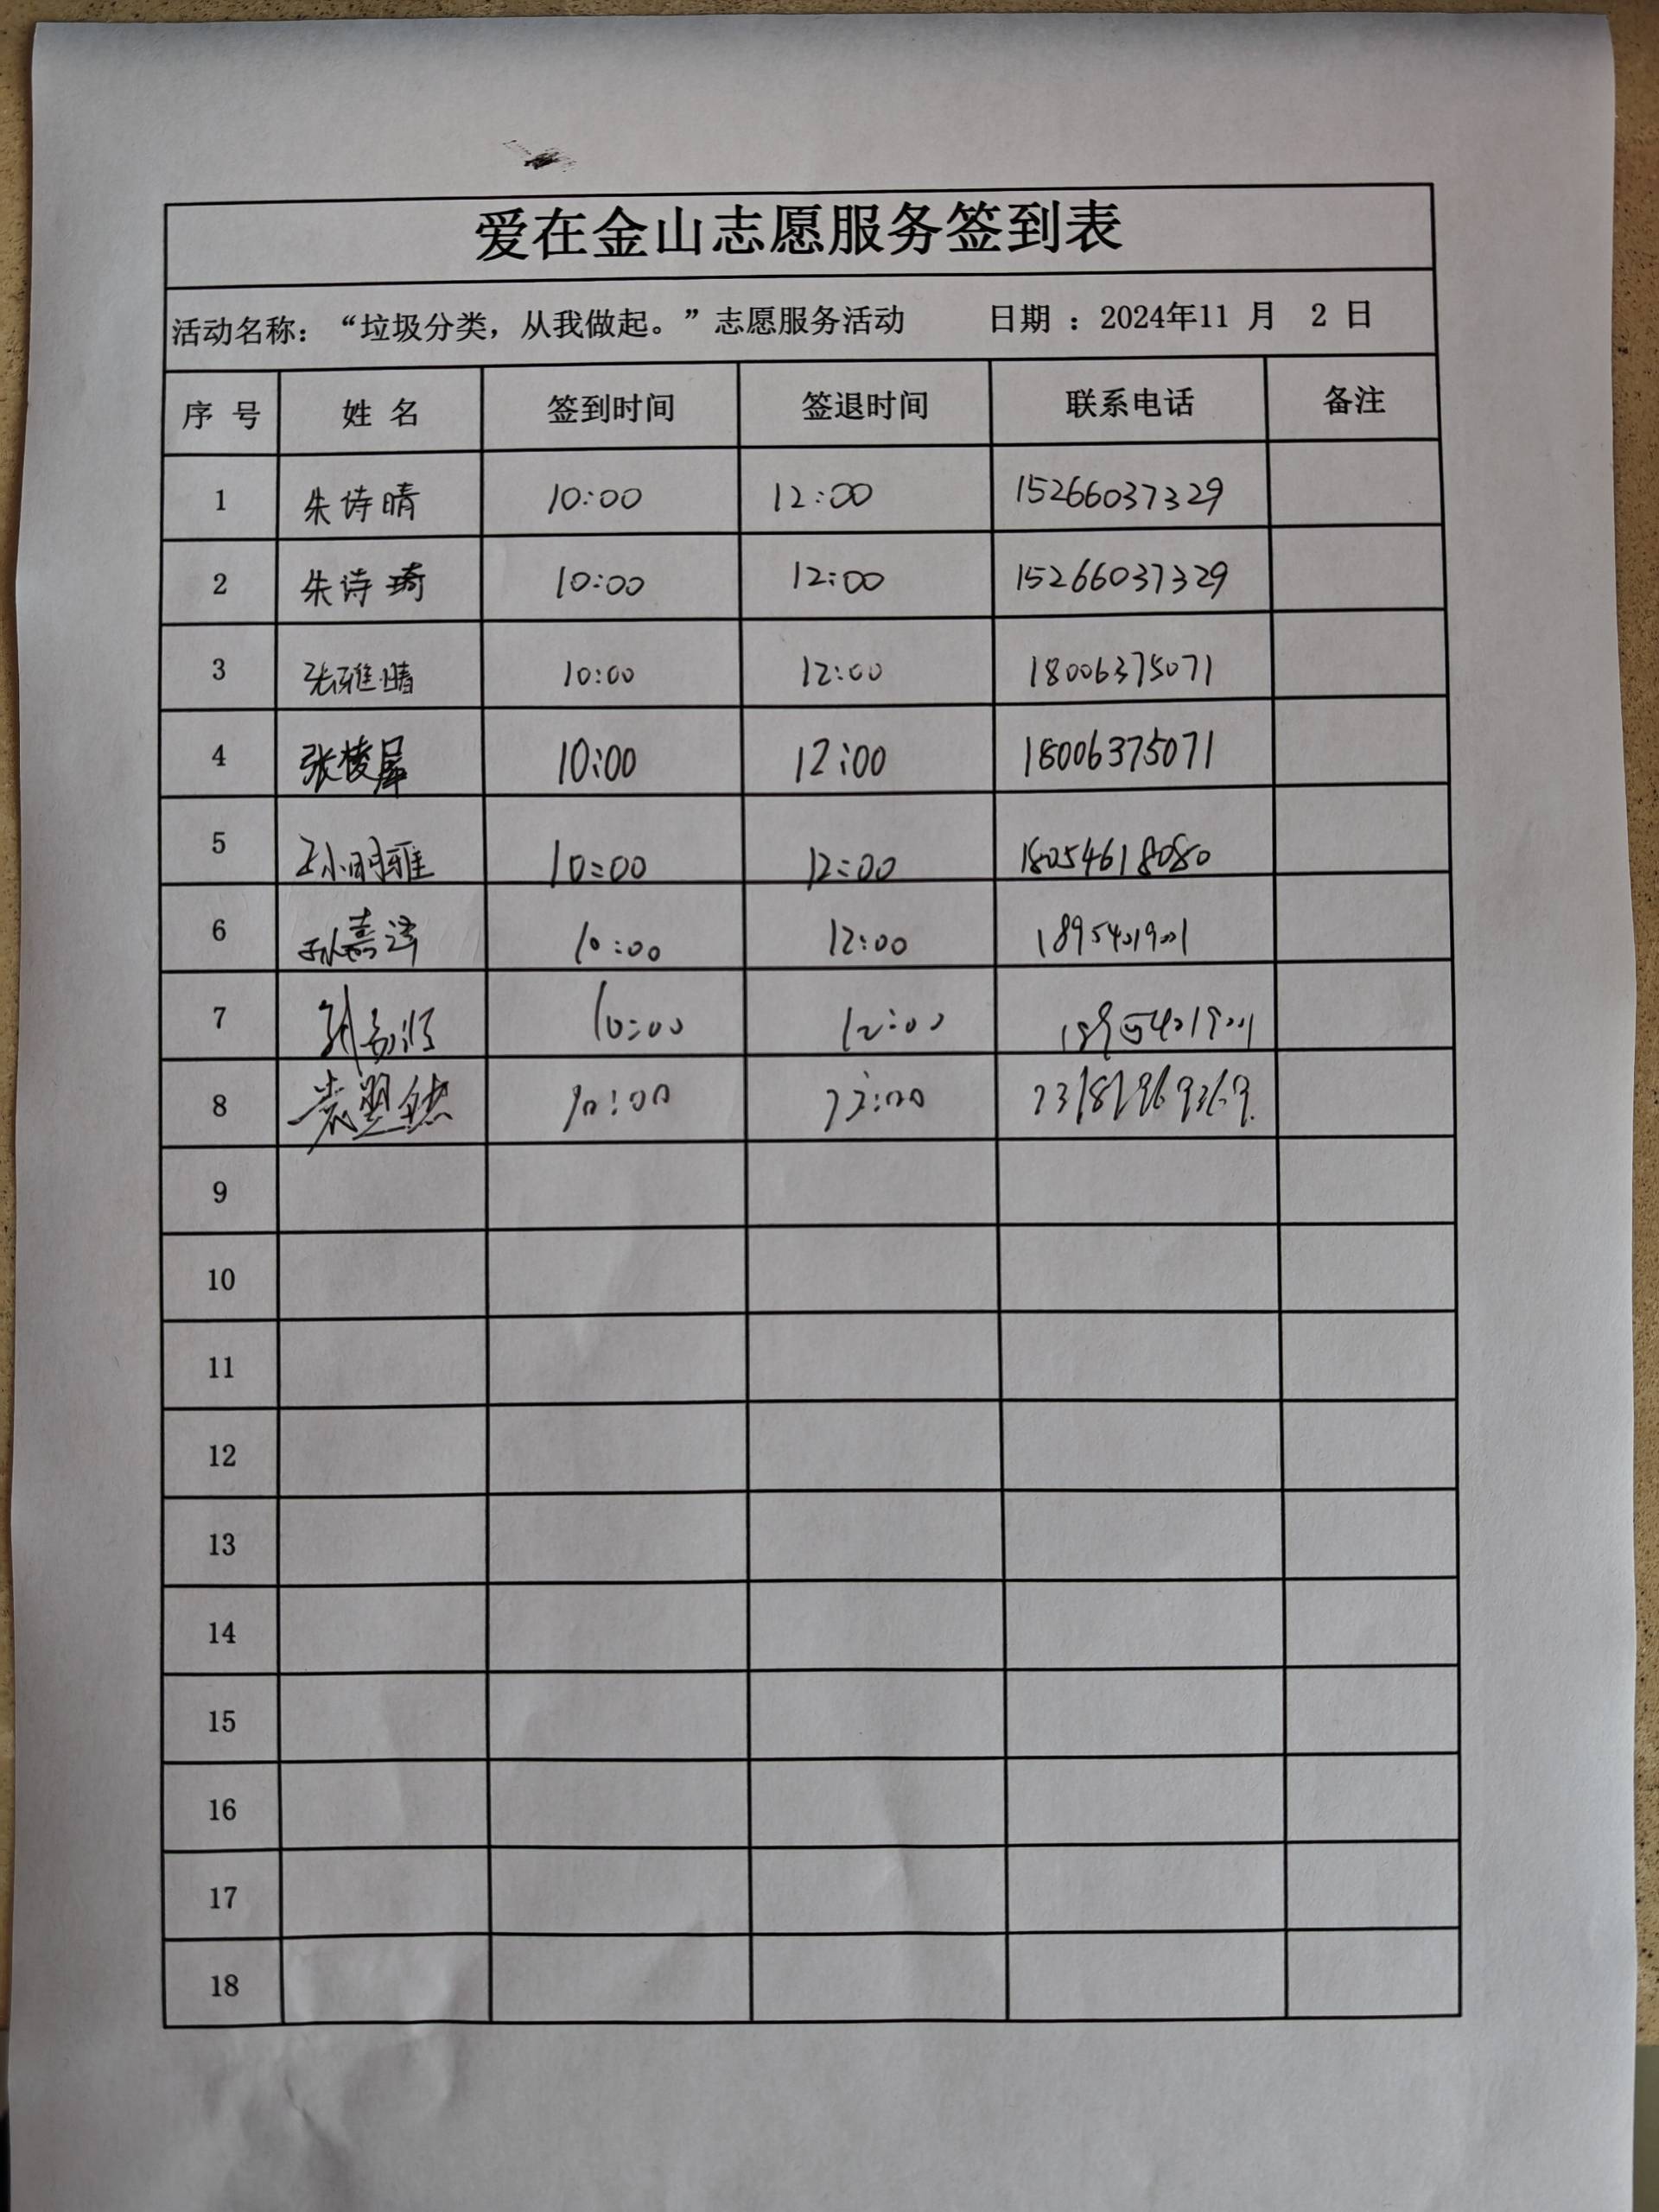 爱在金山志愿服务签到表
活动名称：“垃圾分类，从我做起。”志愿服务活动 日期 ：2024年11 月 2 日
序 号 姓 名 签到时间 签退时间 联系电话 备注
1 朱诗晴 10:00 12:00 15266037329
2 朱诗琦 10:00 12:00 15266037329
3 张雅晴 10:00 12:00 18006375071
4 张棱 10:00 12:00 18006375071
5 孙明雅 10:00 12:00 18054618080
6 孙嘉泽 10:00 12:00 18954019001
7 10:00 12:00 18954019001
8 10:00
9
10
11
12
13
14
15
16
17
18